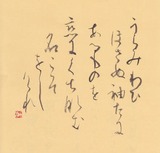 うらみわひ
ほさぬ袖たに
あるものを
恋にくちなむ
名こそ
をし
けれ